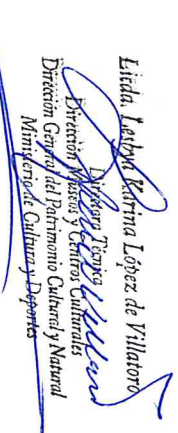 Licda. Lebya Karina López de Villatoro
Directora Técnica
Dirección Museos y Centros Culturales
Dirección General del Patrimonio Cultural y Natural
Ministerio de Cultura y Deportes